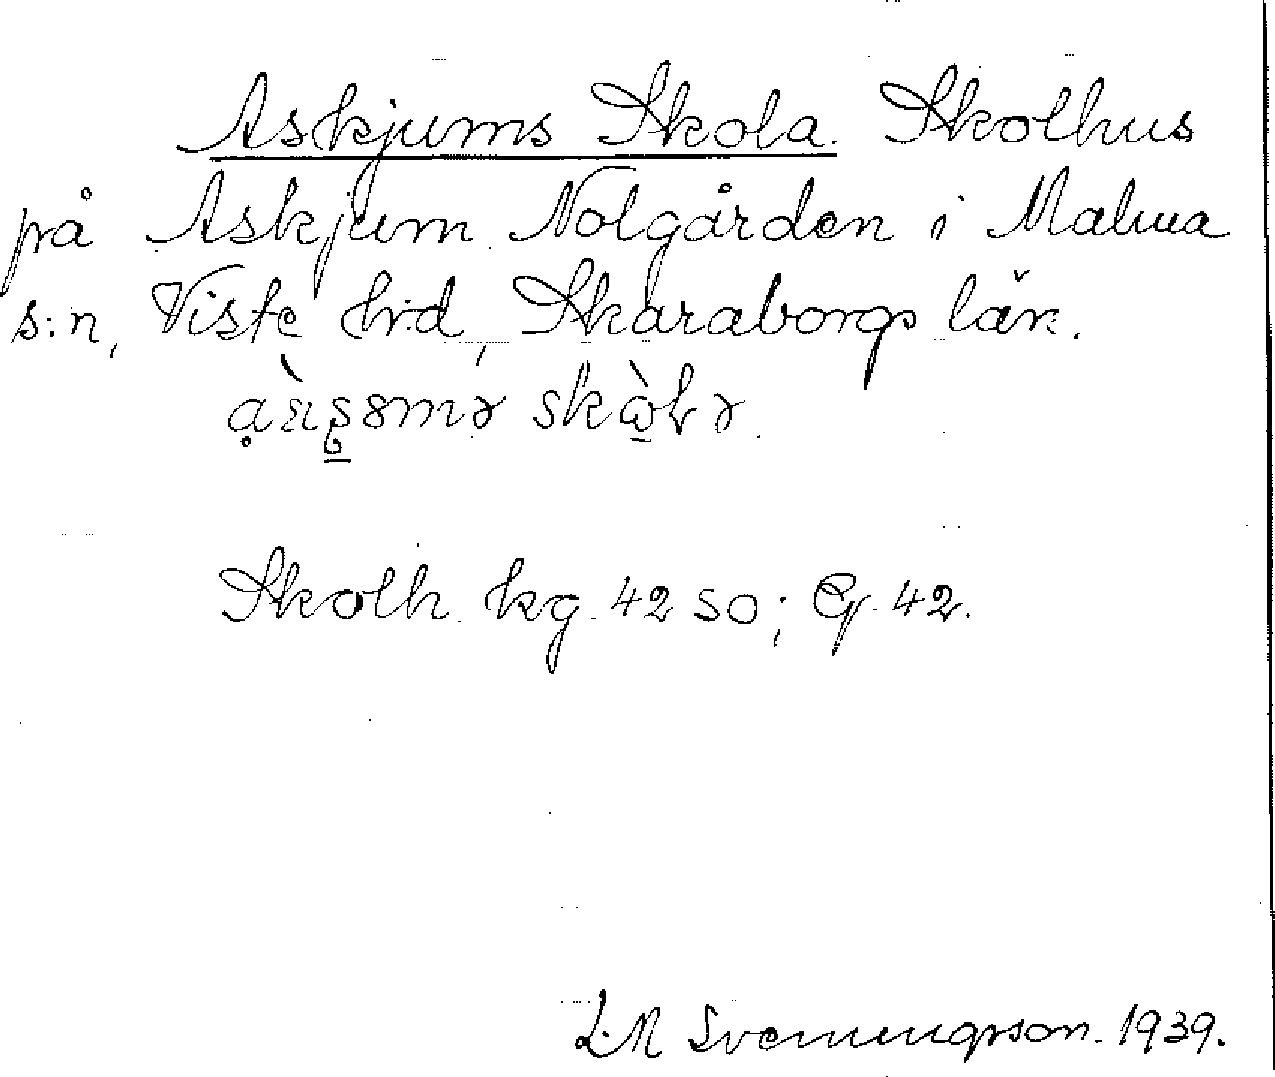 Askjums Skola. Skolhus
på Askjum Nolgården i Malma
s:n, Viste hd, Skaraborgs län.
skòlɔ.
Skolh. kg. 42 SO; G. 42.
L.M Svenungsson. 1939.